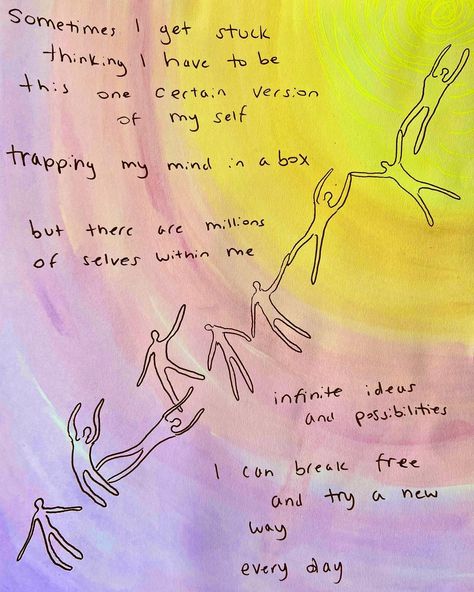 Sometimes I get stuck
thinking I have to be
this one certain version
of my self
trapping my mind in a box
but there are millions
of selves within me
infinite ideas
and possibilities
I can break free
and try a new
way
every day